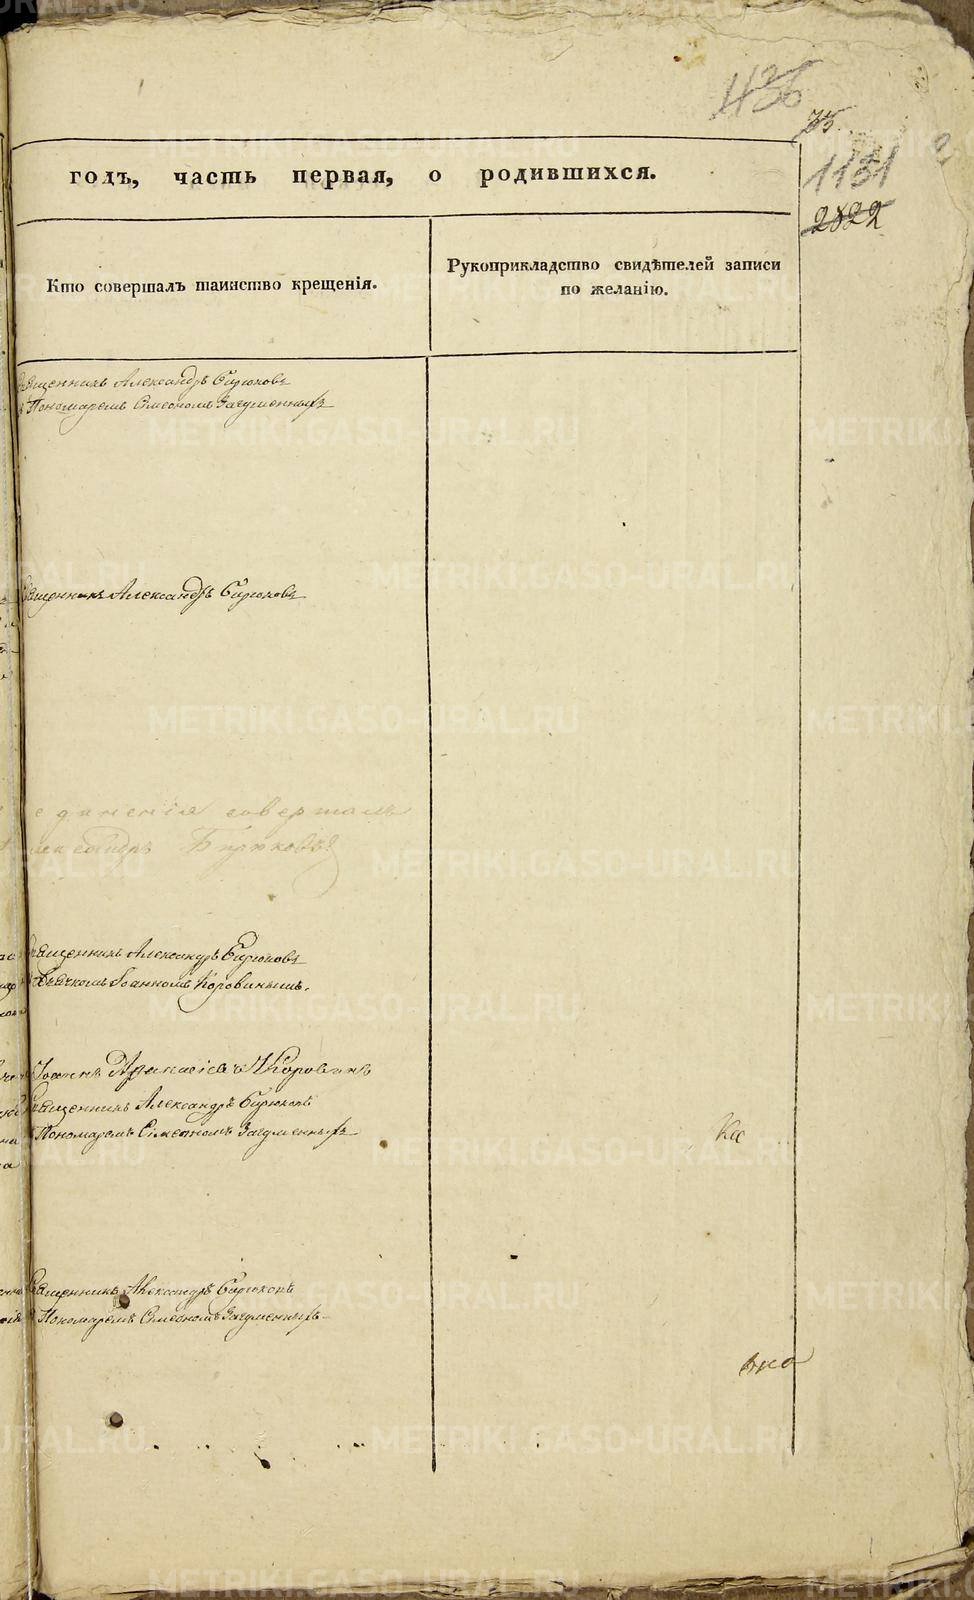 436
35
1131
2822
годъ, часть первая, о родившихся.
Кто совершалъ таинство крещенія.
Рукоприкладство свидѣтелей записи
по желанію.
Священникъ Александръ Бирюковъ
Пономаремъ Симеономъ Загуменныхъ
Священникъ Александръ Бирюковъ
единенія совершалъ
Александръ Бирюковъ
Священникъ Александръ Бирюковъ
Дьячкомъ Іоанномъ Коровинымъ.
Іоаннъ Коровинъ
Священникъ Александръ Бирюковъ
Пономаремъ Симеономъ Загуменныхъ
Священникъ Александръ Бирюковъ
Пономаремъ Симеономъ Загуменныхъ
METRIKI.GASO-URAL.RU